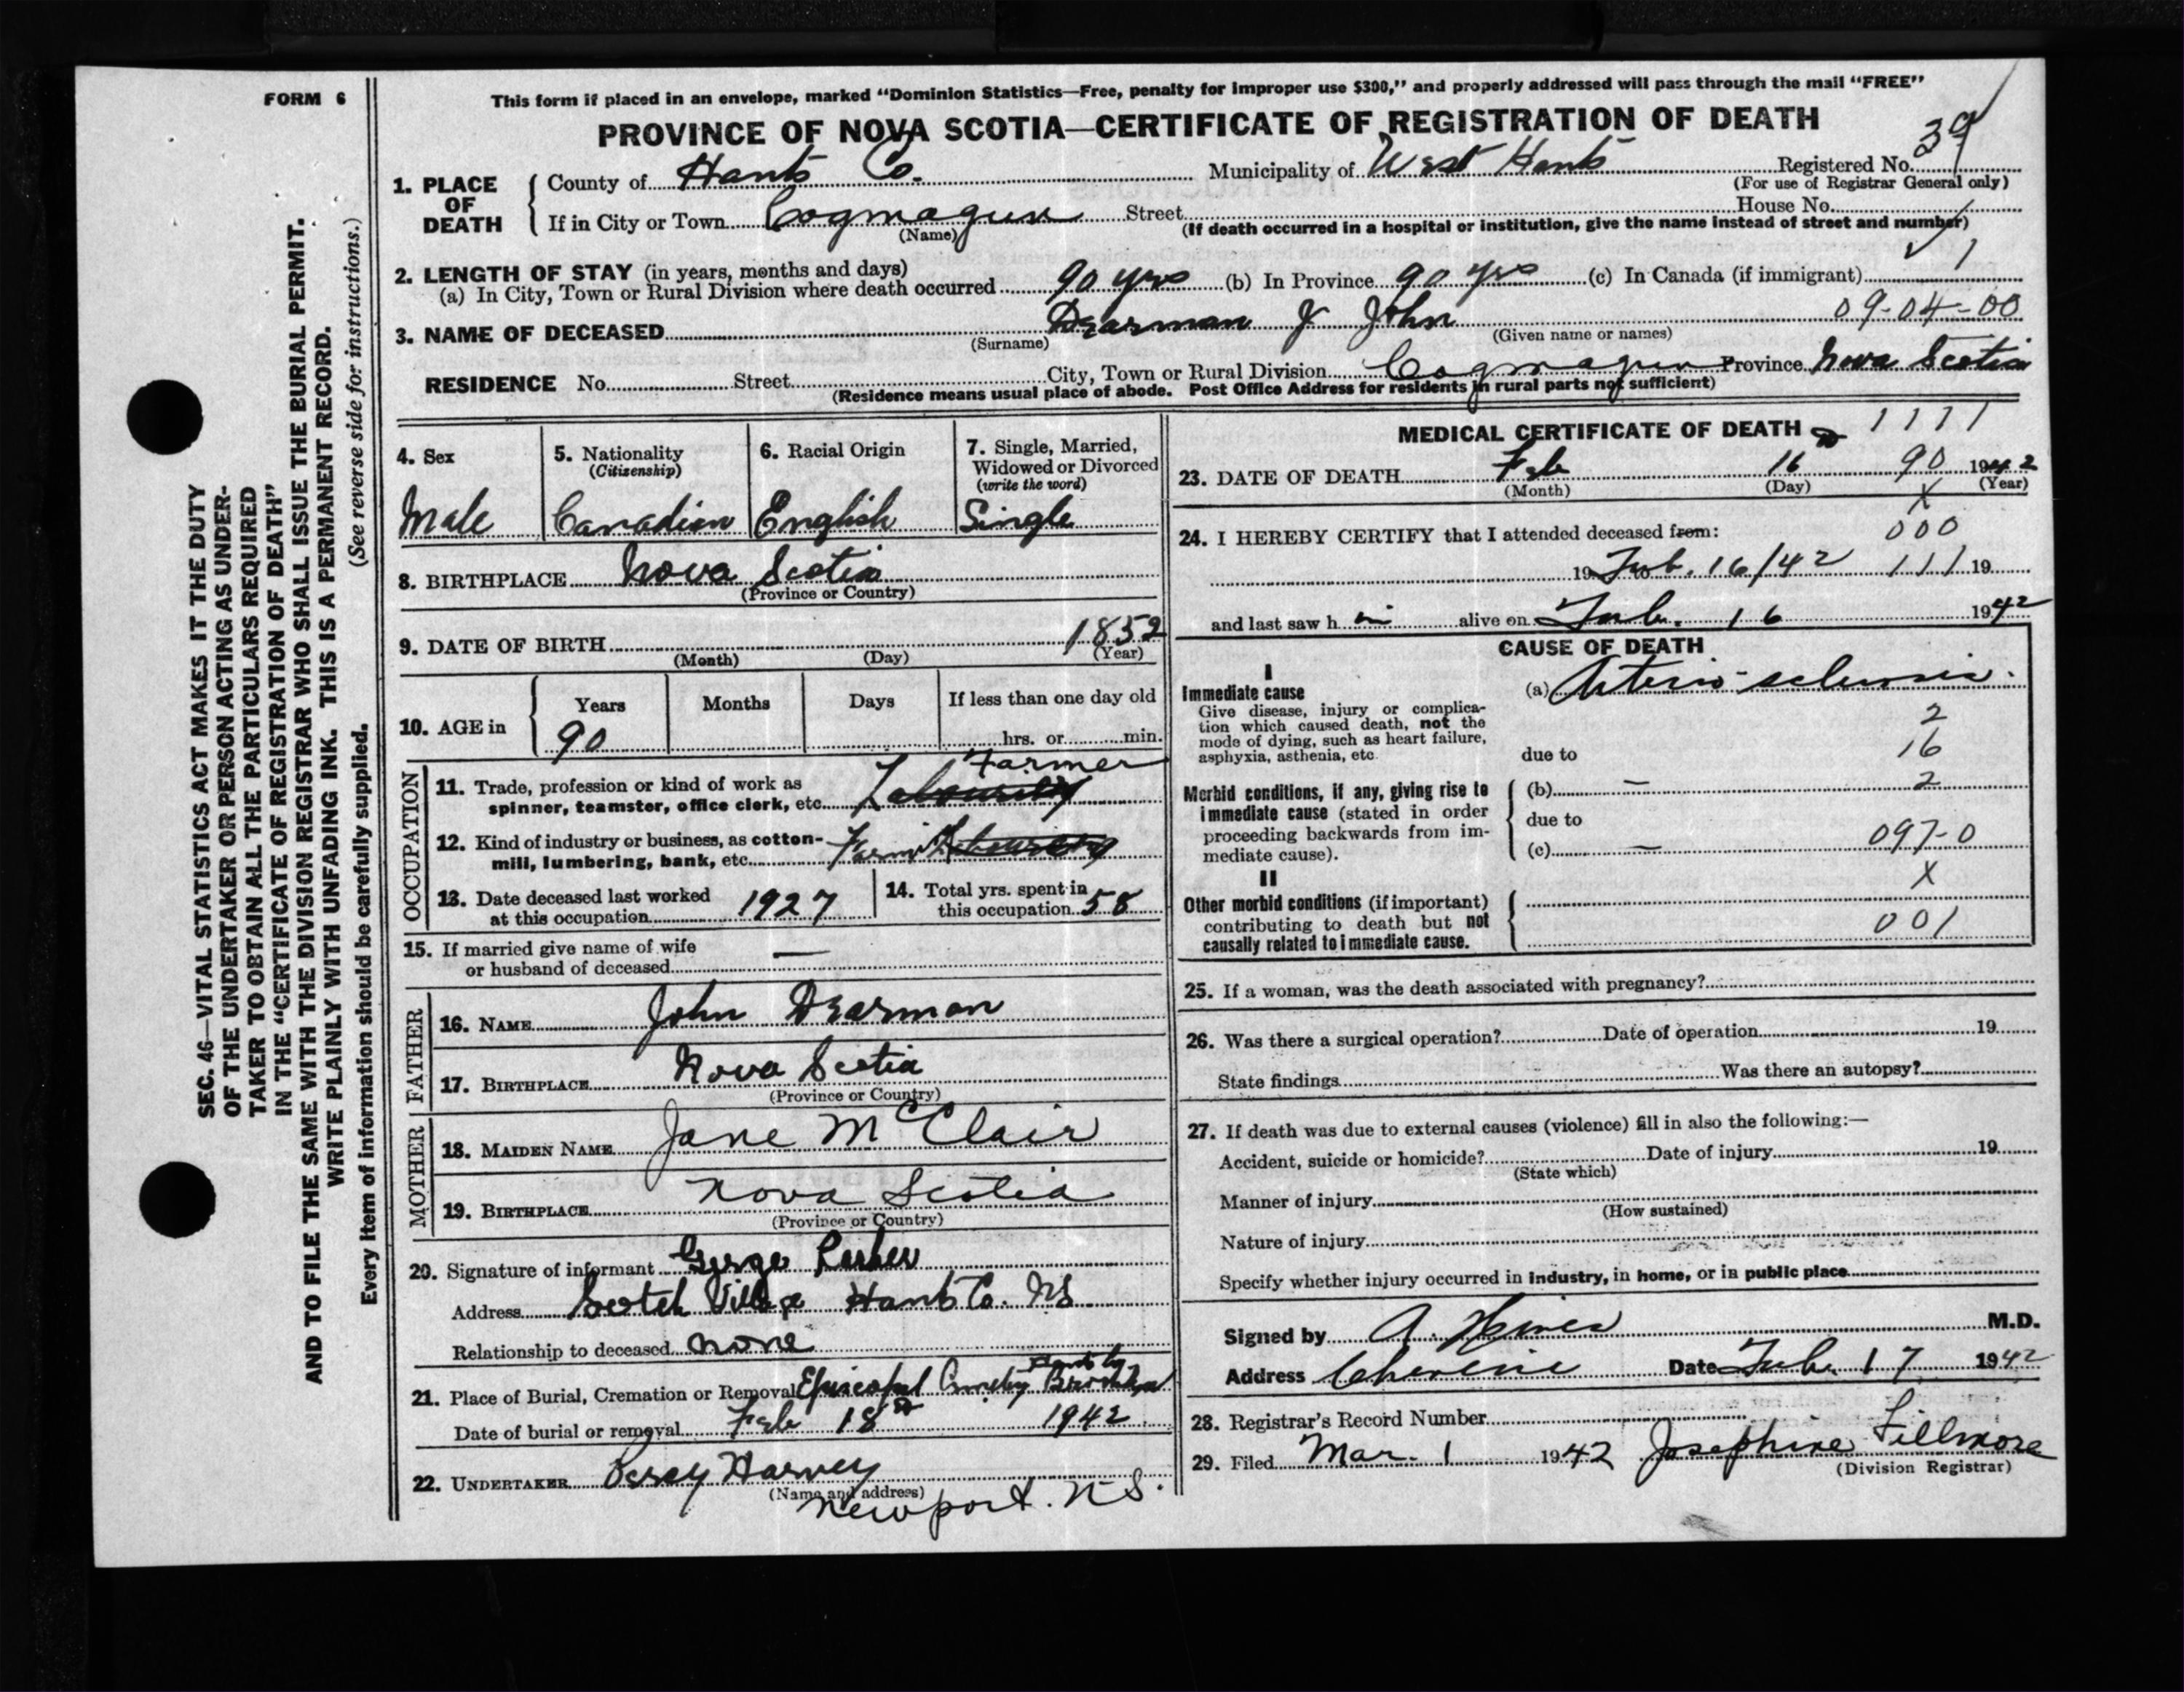 FORM 6
This form if placed in an envelope, marked "Dominion Statistics—Free, penalty for improper use $300," and properly addressed will pass through the mail "FREE"
PROVINCE OF NOVA SCOTIA—CERTIFICATE OF REGISTRATION OF DEATH
39
1. PLACE OF DEATH
County of Hants Co. Municipality of West Hants Registered No.
(For use of Registrar General only)
If in City or Town Cogmagun Street House No.
(Name) (If death occurred in a hospital or institution, give the name instead of street and number)
✓ 1
2. LENGTH OF STAY (in years, months and days)
(a) In City, Town or Rural Division where death occurred 90 yrs (b) In Province 90 yrs (c) In Canada (if immigrant)
3. NAME OF DECEASED Dearman J John 09-04-00
(Surname) (Given name or names)
RESIDENCE No. Street City, Town or Rural Division Cogmagun Province Nova Scotia
(Residence means usual place of abode. Post Office Address for residents in rural parts not sufficient)
SEC. 46—VITAL STATISTICS ACT MAKES IT THE DUTY
OF THE UNDERTAKER OR PERSON ACTING AS UNDER-
TAKER TO OBTAIN ALL THE PARTICULARS REQUIRED
IN THE "CERTIFICATE OF REGISTRATION OF DEATH"
AND TO FILE THE SAME WITH THE DIVISION REGISTRAR WHO SHALL ISSUE THE BURIAL PERMIT.
WRITE PLAINLY WITH UNFADING INK. THIS IS A PERMANENT RECORD.
(See reverse side for instructions.)
Every item of information should be carefully supplied.
4. Sex
Male
5. Nationality
(Citizenship)
Canadian
6. Racial Origin
English
7. Single, Married,
Widowed or Divorced
(write the word)
Single
8. BIRTHPLACE Nova Scotia
(Province or Country)
9. DATE OF BIRTH 1852
(Month) (Day) (Year)
10. AGE in
Years Months Days If less than one day old
90 hrs. or min.
OCCUPATION
Farmer
11. Trade, profession or kind of work as
spinner, teamster, office clerk, etc.
12. Kind of industry or business, as cotton-
mill, lumbering, bank, etc.
13. Date deceased last worked
at this occupation 1927
14. Total yrs. spent in
this occupation 58
15. If married give name of wife
or husband of deceased —
FATHER
16. NAME John Dearman
17. BIRTHPLACE Nova Scotia
(Province or Country)
MOTHER
18. MAIDEN NAME Jane McClair
19. BIRTHPLACE Nova Scotia
(Province or Country)
20. Signature of informant George
Address Scotch Village Hants Co. NS
Relationship to deceased none
21. Place of Burial, Cremation or Removal Episcopal
Date of burial or removal Feb 18 1942
22. UNDERTAKER Percy Harvey
(Name and address)
Newport. N.S.
MEDICAL CERTIFICATE OF DEATH 1111
23. DATE OF DEATH Feb 16 90 1942
(Month) (Day) (Year)
X
24. I HEREBY CERTIFY that I attended deceased from: 000
19 Feb. 16/42 111 19
and last saw h im alive on Feb. 16 1942
CAUSE OF DEATH
I
Immediate cause
Give disease, injury or complica-
tion which caused death, not the
mode of dying, such as heart failure,
asphyxia, asthenia, etc.
(a) Arterio-sclerosis.
2
16
due to
Morbid conditions, if any, giving rise to
immediate cause (stated in order
proceeding backwards from im-
mediate cause).
(b) — 2
due to
(c) — 097-0
X
II
Other morbid conditions (if important)
contributing to death but not
causally related to immediate cause.
001
25. If a woman, was the death associated with pregnancy?
26. Was there a surgical operation? Date of operation 19
State findings Was there an autopsy?
27. If death was due to external causes (violence) fill in also the following:—
Accident, suicide or homicide? Date of injury 19
(State which)
Manner of injury
(How sustained)
Nature of injury
Specify whether injury occurred in industry, in home, or in public place
Signed by A. M.D.
Address Date Feb. 17 1942
28. Registrar's Record Number
29. Filed Mar. 1 1942 Josephine Fillmore
(Division Registrar)